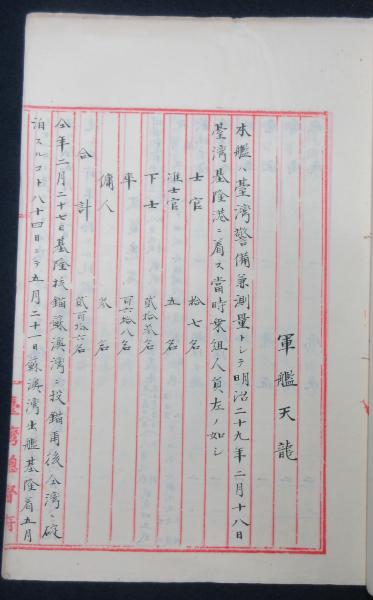 軍艦天龍
本艦ハ臺湾警備兼測量トシテ明治二十九年二月十八日
臺湾基隆港ニ着ス當時乗組人員左ノ如シ
士官 拾七名
准士官 五名
下士 弐拾参名
卒 百六拾八名
傭人 参名
合計 弐百拾六名
仝年二月二十七日基隆抜錨蘇澳湾ニ投錨爾後仝湾ニ碇
泊スルコト八十四日ニシテ五月二十一日蘇澳湾出艦基隆着五月
臺灣總督府